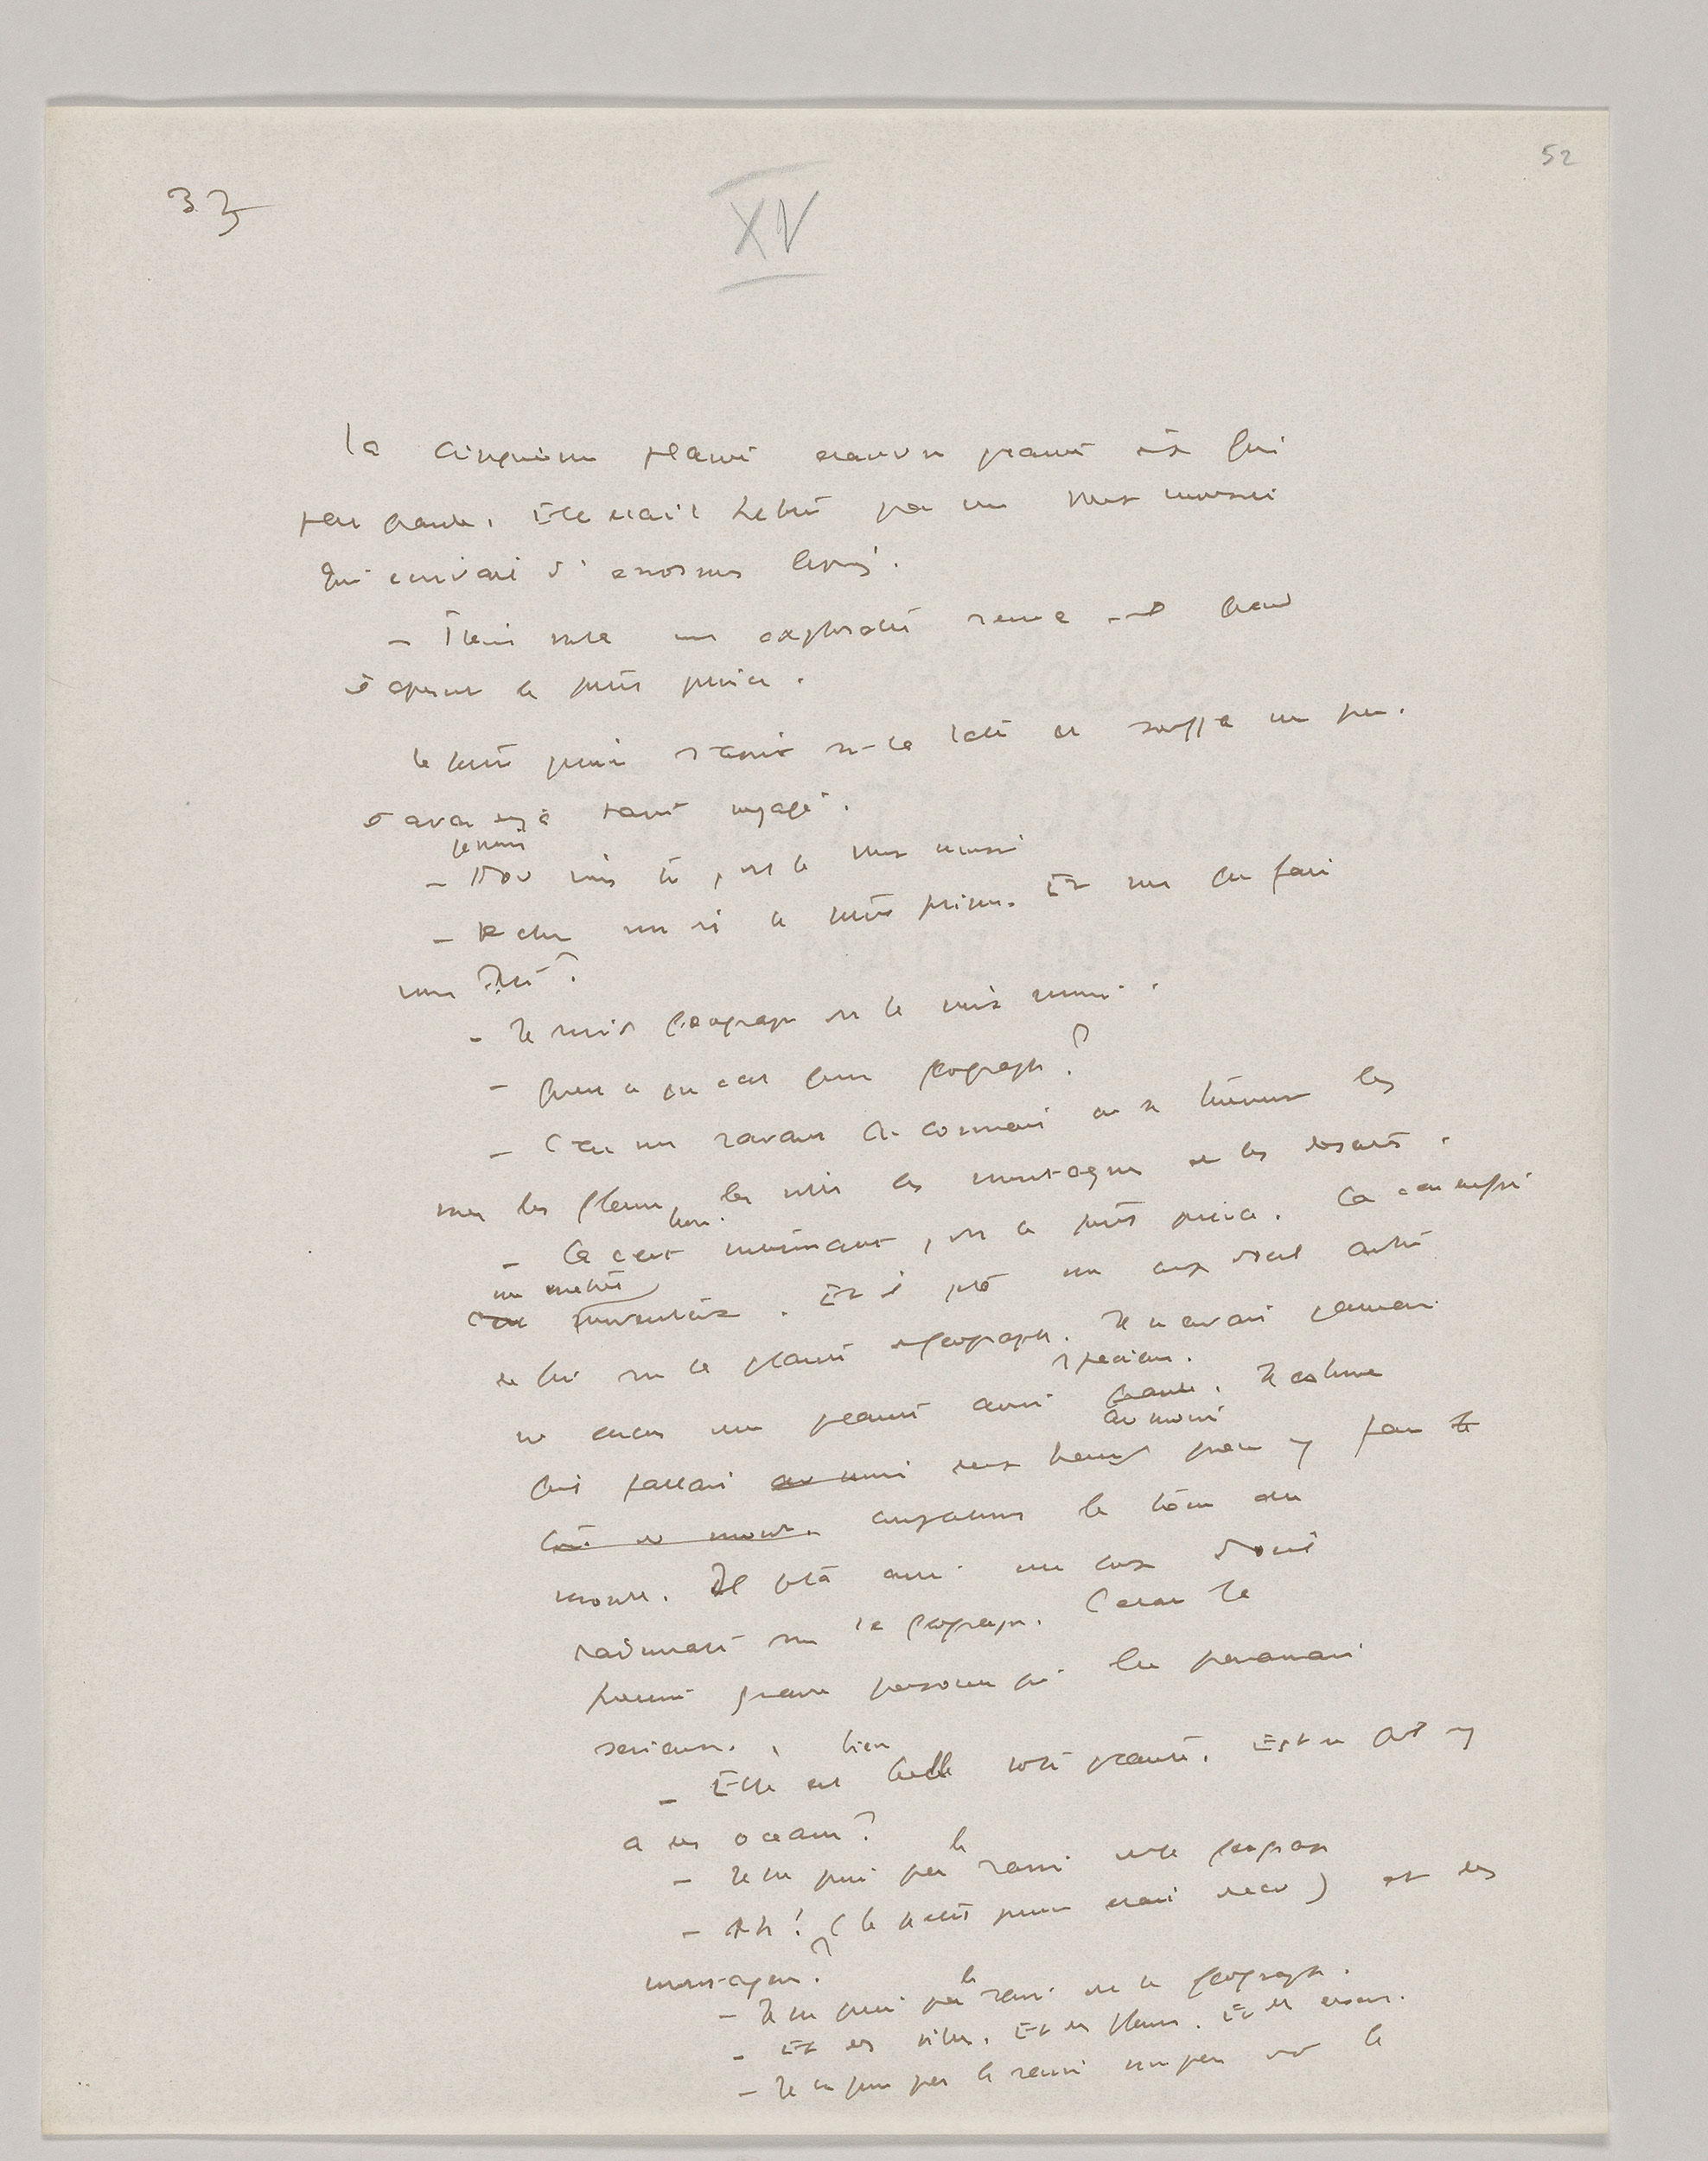 33 XV 52
La cinquième planète était une planète dix fois
plus grande. Elle était habitée par un vieux monsieur
qui écrivait d'énormes livres.
- Tiens voilà un explorateur quand
il aperçut le petit prince.
Le petit prince s'assit sur la table et souffla un peu.
Il avait déjà tant voyagé.
- D'où viens tu, dit le vieux monsieur
le petit prince. Et vous que fait
vous ici?
- Je suis géographe dit le vieux monsieur.
- Qu'est ce que c'est qu'un géographe?
- C'est un savant qui connait où se trouvent les
mers les fleuves les villes les montagnes et les déserts.
- Ça c'est bien intéressant, dit le petit prince. Ça c'est enfin
un métier. Et il jeta un coup d'oeil autour
de lui sur la planète du géographe. Il n'avait jamais
vu encore une planète aussi grande. Il estima
spéciale.
qu'il fallait au moins deux heures pour y faire
au moins
le tour du
monde. Il jeta aussi un coup d'oeil
sur le géographe. C'était la
première grande personne qui lui paraissait
sérieuse.
- Elle est bien belle votre planète. Est ce qu'il y
a des océans?
- Je ne puis pas le savoir dit le géographe
- Ah! (le petit prince était déçu) et des
montagnes?
- Je ne puis pas le savoir dit le géographe.
- Et des villes. Et des fleuves. Et des déserts.
- Je ne puis pas le savoir non plus dit le